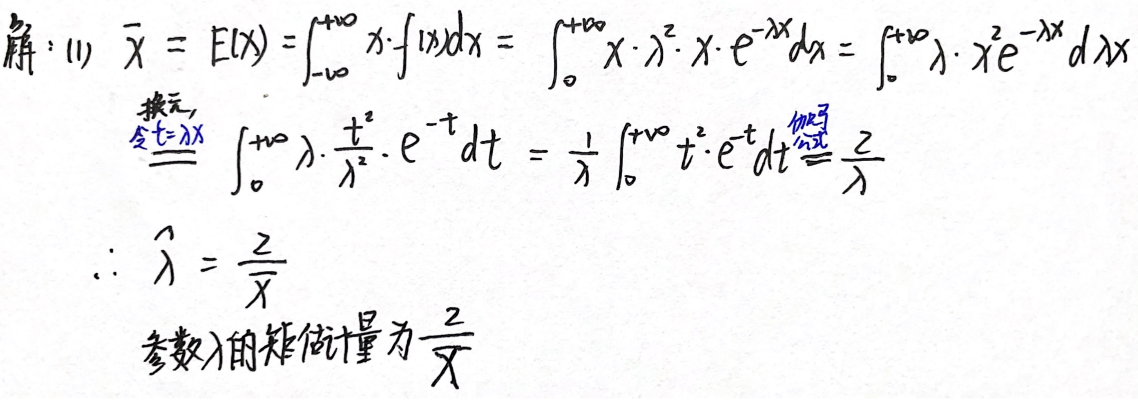 解：(1) X̄ = E(X) = ∫_{-∞}^{+∞} x·f(x)dx = ∫_0^{+∞} x·λ²·x·e^{-λx}dx = ∫_0^{+∞} λ·x²e^{-λx} dλx
换元,
令t=λx
═ ∫_0^{+∞} λ·t²/λ²·e^{-t}dt = 1/λ ∫_0^{+∞} t²·e^{-t}dt 伽玛公式 ═ 2/λ
∴ λ̂ = 2/X̄
参数λ的矩估计量为 2/X̄